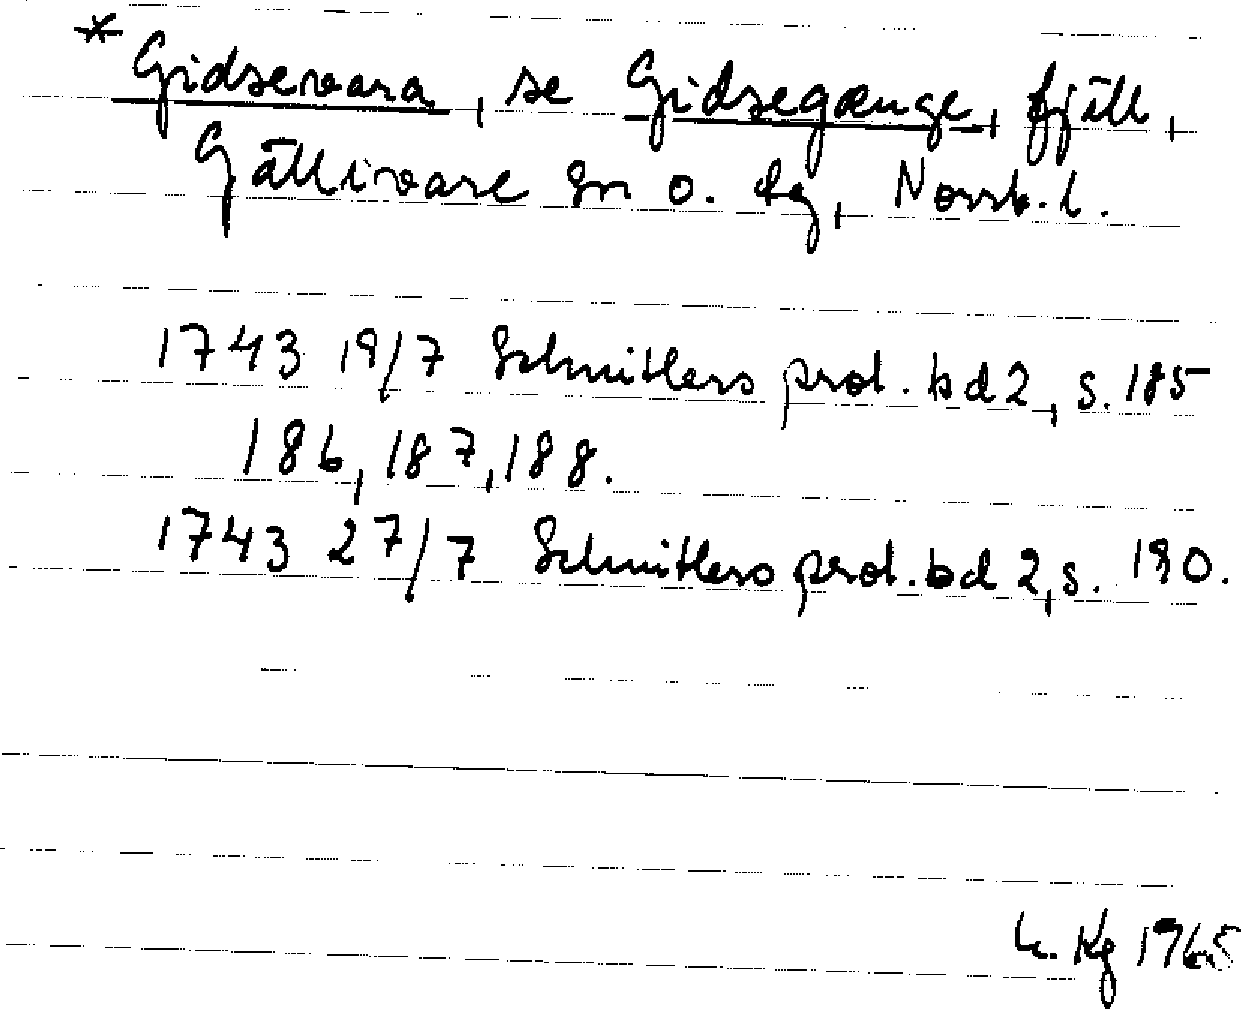 * Gidsevara, se Gidsegænge, fjäll,
Gällivare sn o. lg, Norrb. l.
1743 19/7 Schnitlers prot. bd 2, s. 185
186, 187, 188.
1743 27/7 Schnitlers prot. bd 2, s. 190.
Kg 1965